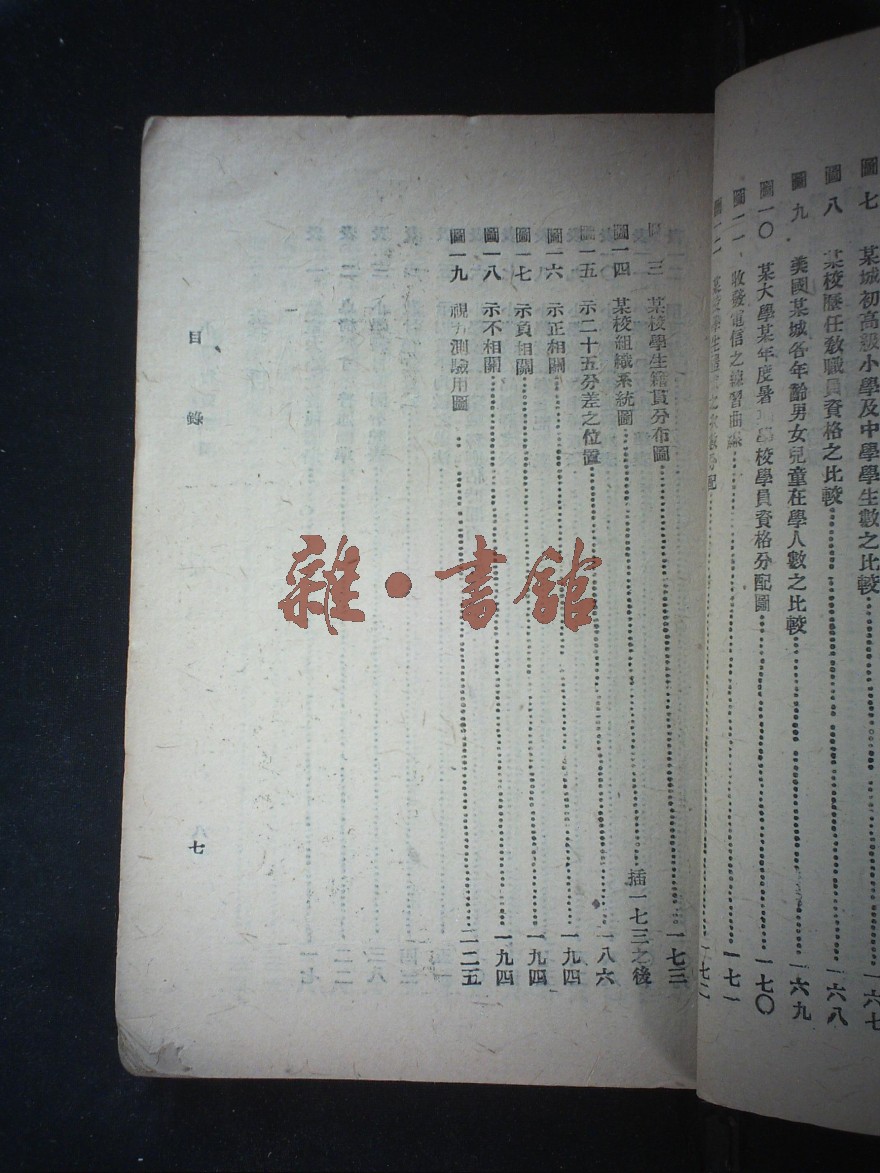 圖七 某城初高級小學及中學學生數之比較……一六七
圖八 某校歷任教職員資格之比較……一六八
圖九 美國某城各年齡男女兒童在學人數之比較……一六九
圖一〇 某大學某年度暑 學校學員資格分配圖……一七〇
圖一一 收發電信之練習曲線……一七一
圖一二 某校學生 之 分配……一七二
圖 三 某校學生籍貫分布圖……一七三
圖一四 某校組織系統圖……插一七三之後
圖一五 示二十五分差之位置……一八六
圖一六 示正相關……一九四
圖一七 示負相關……一九四
圖一八 示不相關……一九四
圖一九 視力測驗用圖……二二五
目錄
七
雜·書館